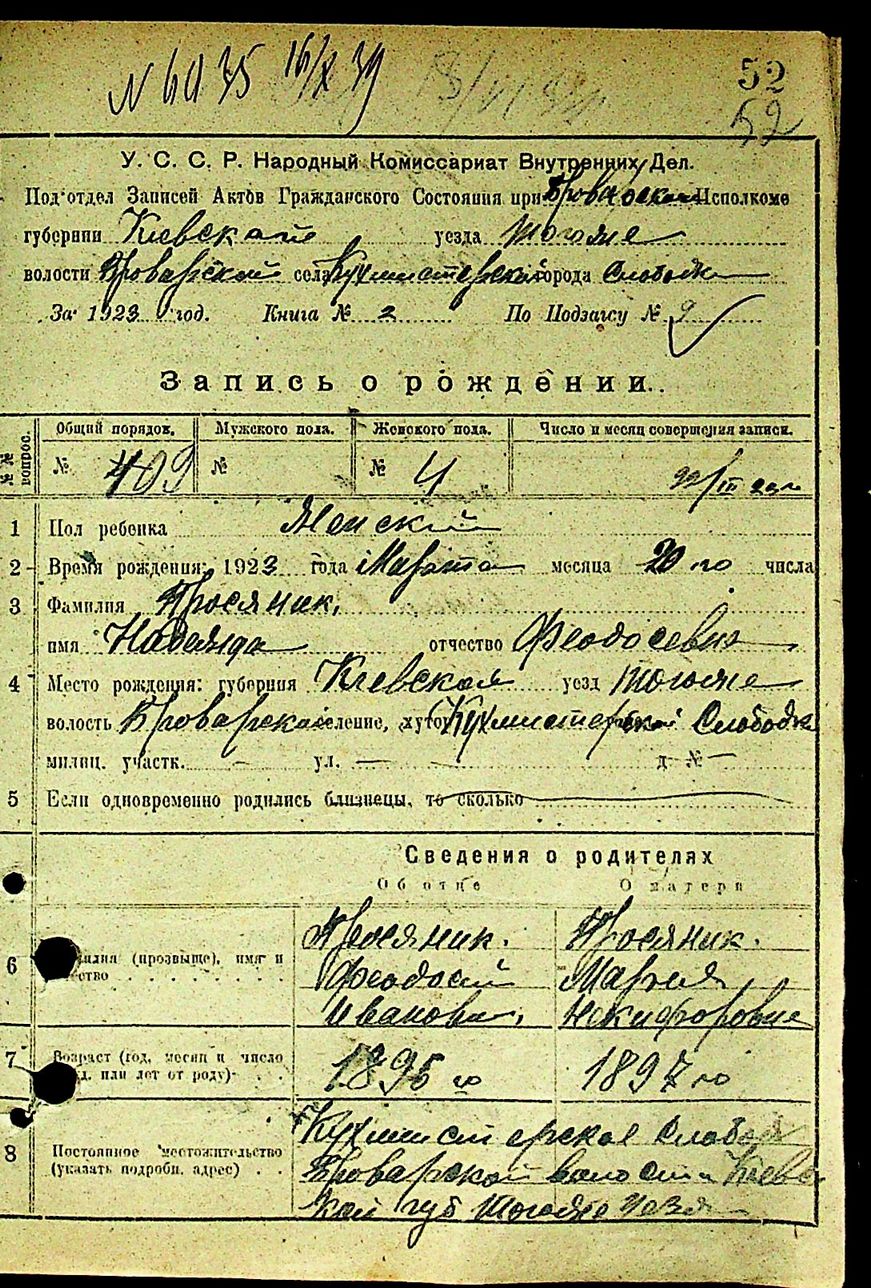 N 6075 16/X 39
52
52
У. С. С. Р. Народный Комиссариат Внутренних Дел.
Подотдел Записей Актов Гражданского Состояния при Броварском Исполкоме
губернии Киевской уезда тогоже
волости Броварской села Кухмистерской города Слободки
За 1923 год. Книга № 2 По Подзагсу № 9
Запись о рождении.
№№ вопрос. Общий порядов. Мужского пола. Женского пола. Число и месяц совершения записи.
№ 409 № № 4 22/III 23 г
1 Пол ребенка Женский
2 Время рождения: 1923 года Марта месяца 20 го числа
3 Фамилия Просяник.
имя Надежда отчество Феодосевна
4 Место рождения: губерния Киевская уезд тогоже
волость Броварская селение, хутор Кухмистерской Слободка
милиц. участк. — ул. — д. № —
5 Если одновременно родились близнецы, то сколько
Сведения о родителях
Об отце О матери
6 Просяник. Просяник.
(прозвище), имя и Феодосий Мария
Иванович, Некифоровна
7 Возраст (год, месяц и число 1895 го 1897 го
или лет от роду)
8 Постоянное местожительство Кухмистерская Слобода
(указать подробн. адрес) Броварской волости Киевс
кой губ тогоже уезда